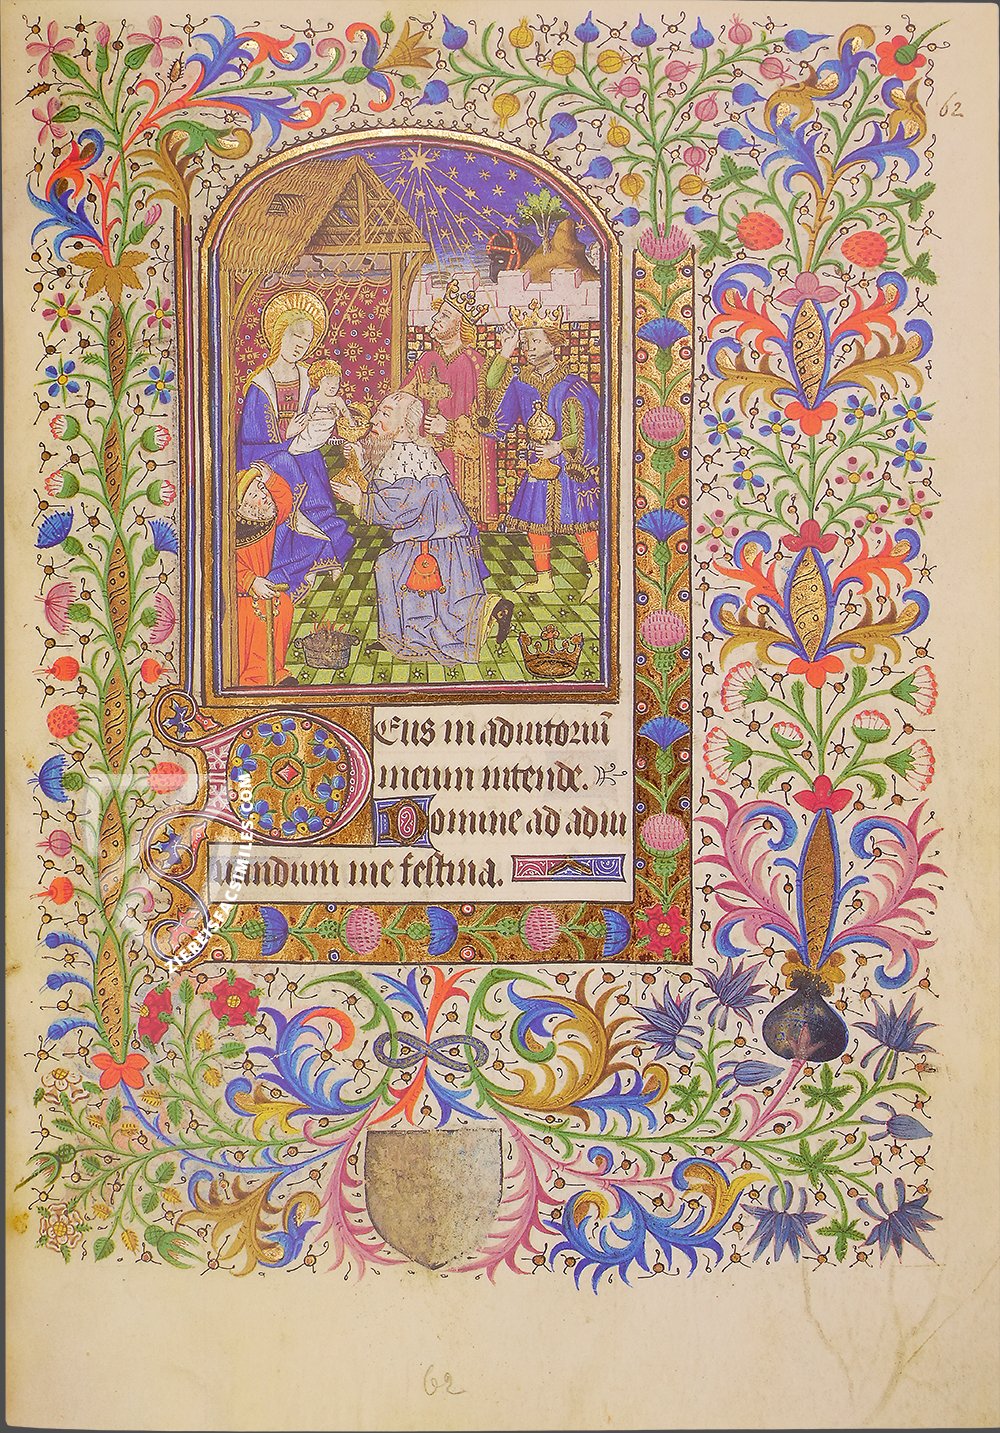 62
Deus in adiutoriū
meum intende.
Domine ad adiu
uandum me festina.
ZIEREISFACSIMILES.COM
62